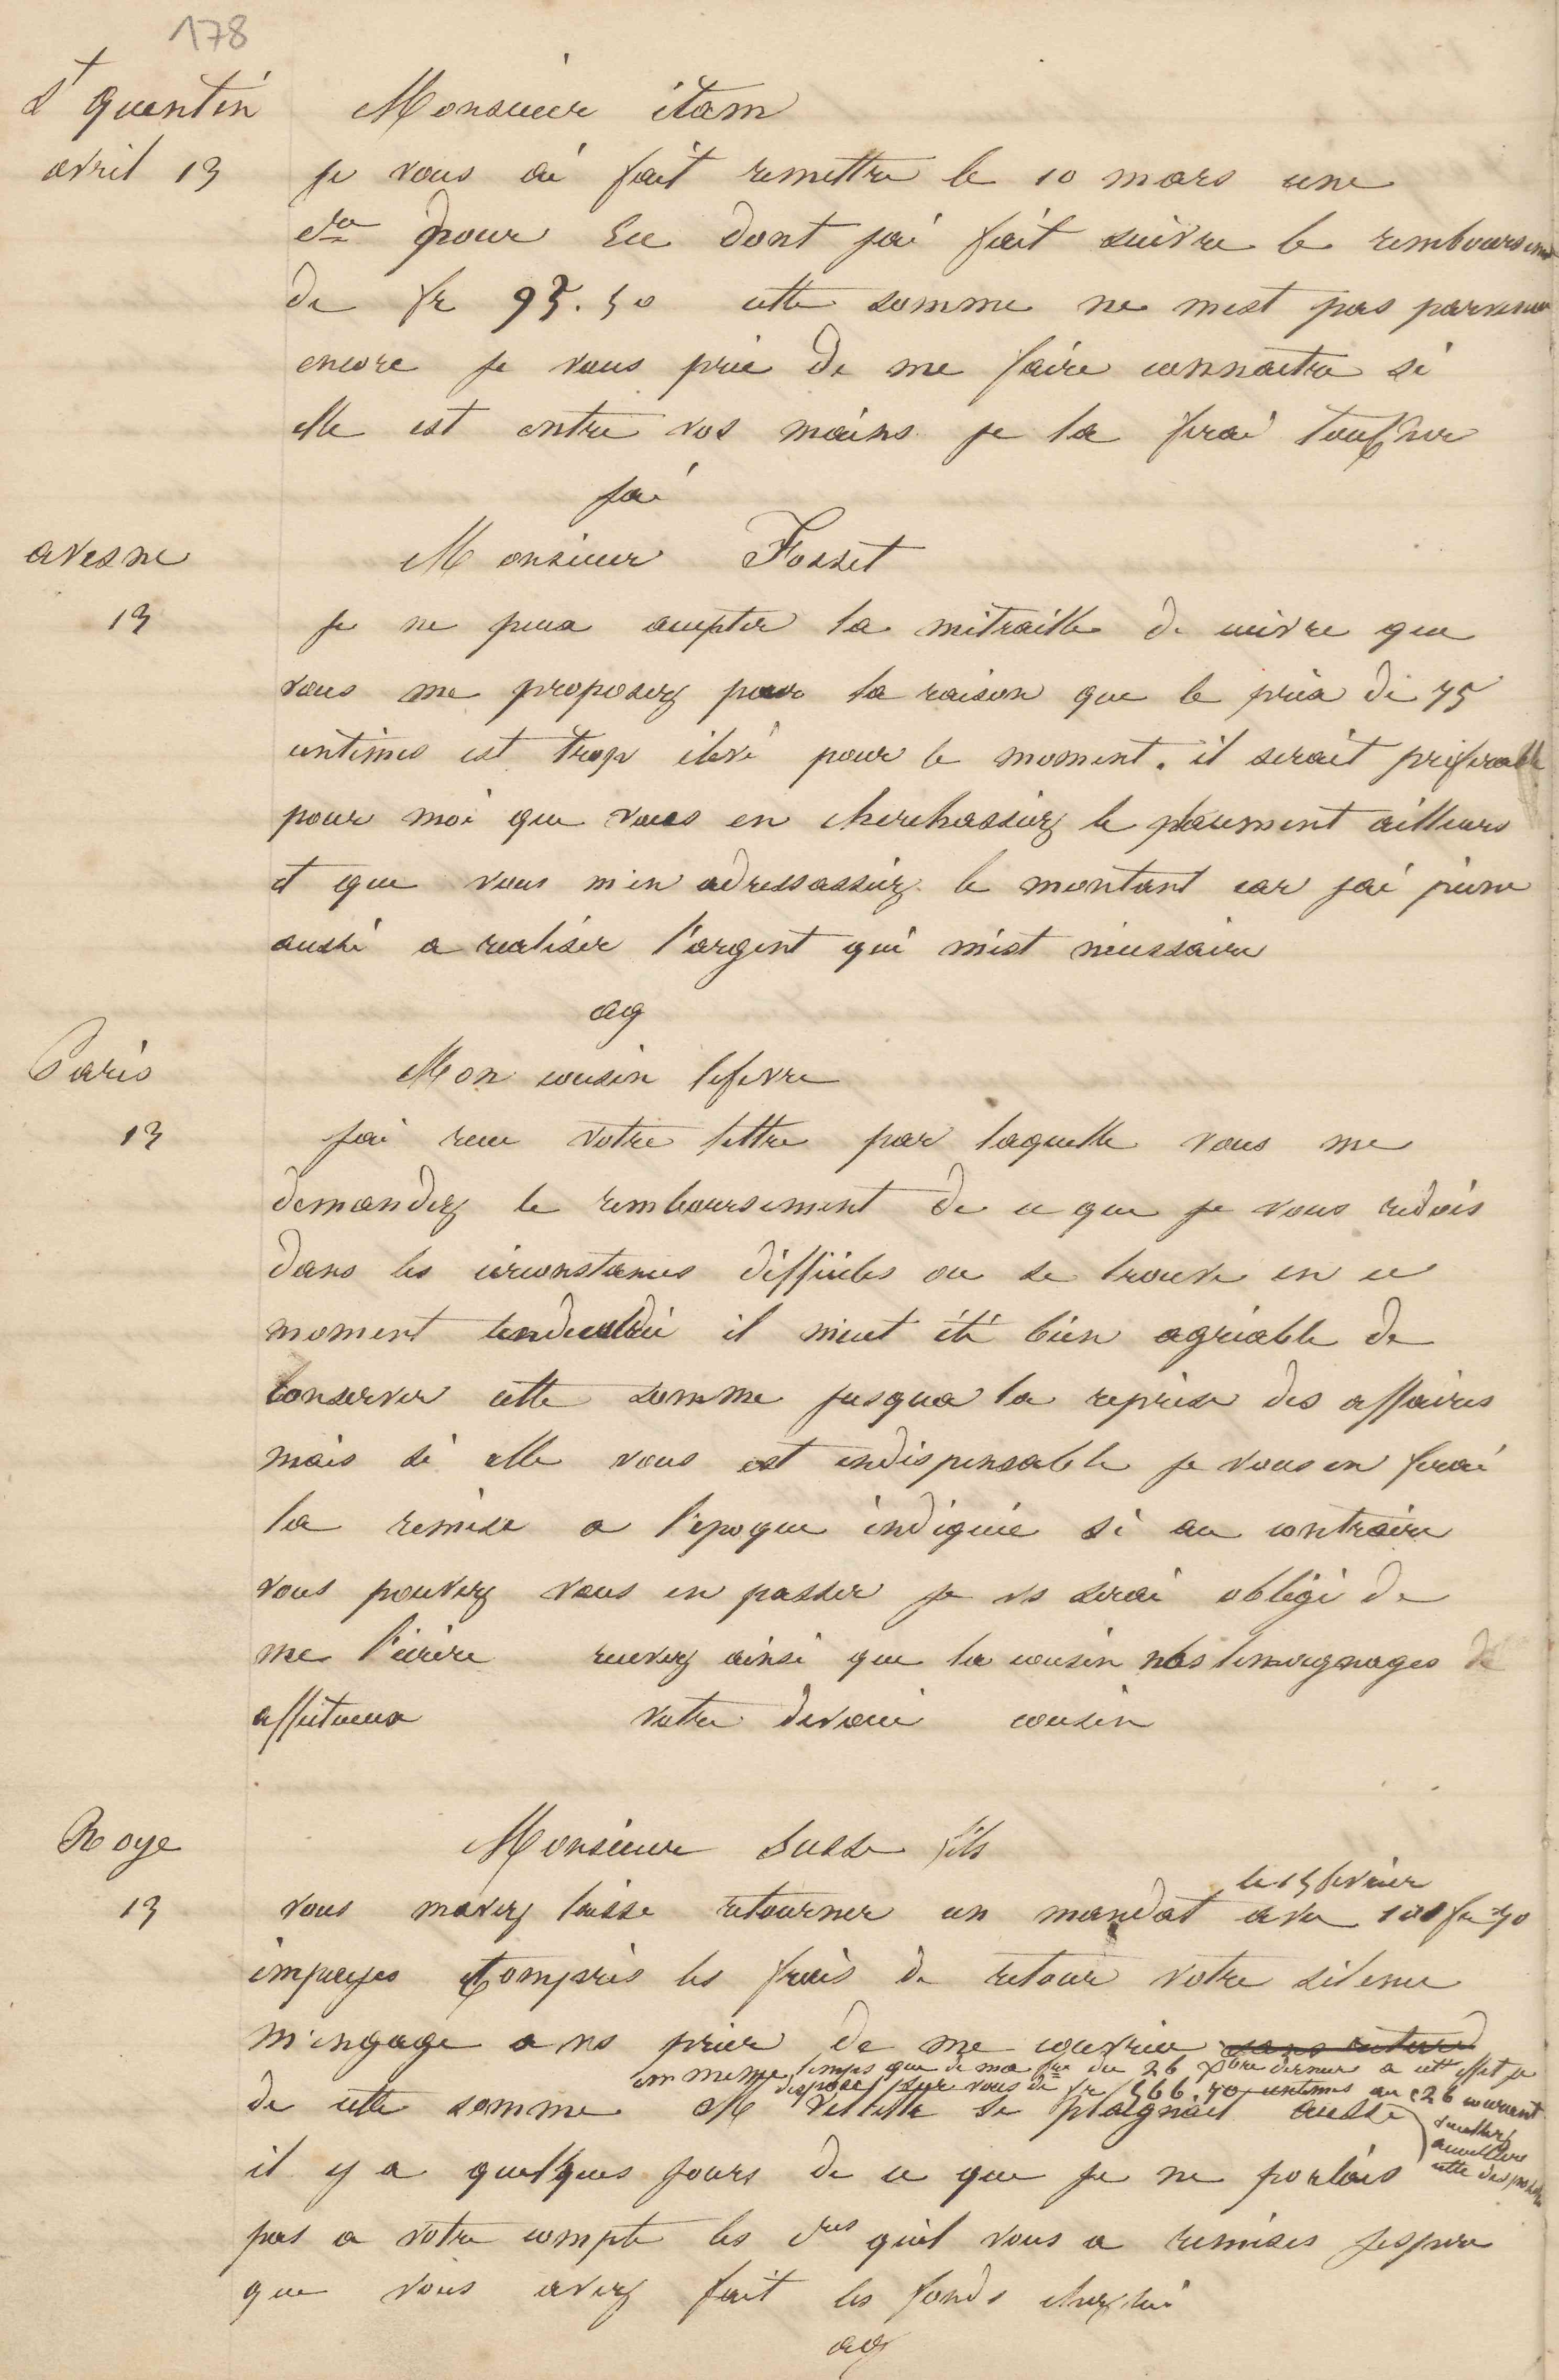 178
St quentin Monsieur itam
avril 13 je vous ai fait remettre le 10 mars une
dre pour Eu dont jai fait suivre le remboursemt
de fr 95.50 cette somme ne mest pas parvenue
encore je vous prie de me faire connaitre si
elle est entre vos mains je la ferai toucher
jai
avesne Monsieur Fosset
13 je ne peux accepter la mitraille de cuivre que
vous me proposez pour la raison que le prix de 75
centimes est trop élevé pour le moment. il serait preferable
pour moi que vous en cherchassiez le placement ailleurs
et que vous m'en adressassiez le montant car jai peine
aussi a realiser l'argent qui m'est nécessaire
ag
Paris Mon cousin lefevre
13 jai recu votre lettre par laquelle vous me
demandez le remboursement de ce que je vous redois
dans les circonstances difficiles ou se trouve en ce
moment il m'eut été bien agréable de
conserver cette somme jusqua la reprise des affaires
mais si elle vous est indispensable je vous en ferai
la remise a l'epoque indiquée si au contraire
vous pouvez vous en passer je vs serai obligé de
me l'écrire recevez ainsi que la cousin nos temoignages
affectueux votre devoué cousin
Roye Monsieur Susse fils
le 15 fevrier
13 vous mavez laisse retourner un mandat de 101 fr 70
impayes compris les frais de retour votre silence
m'engage a vs prier de me couvrir sans retard
en meme temps que de ma fre du 26 Xbre dernier a cet effet je
dispose sur vous de fr 566.70 centimes au 26 courant
de cette somme M se plaignait aussi
accueillir
cette disposition
il y a quelques jours de ce que je ne portais
pas a votre compte les dres quil vous a remises jespere
que vous avez fait les fonds chez lui
ag